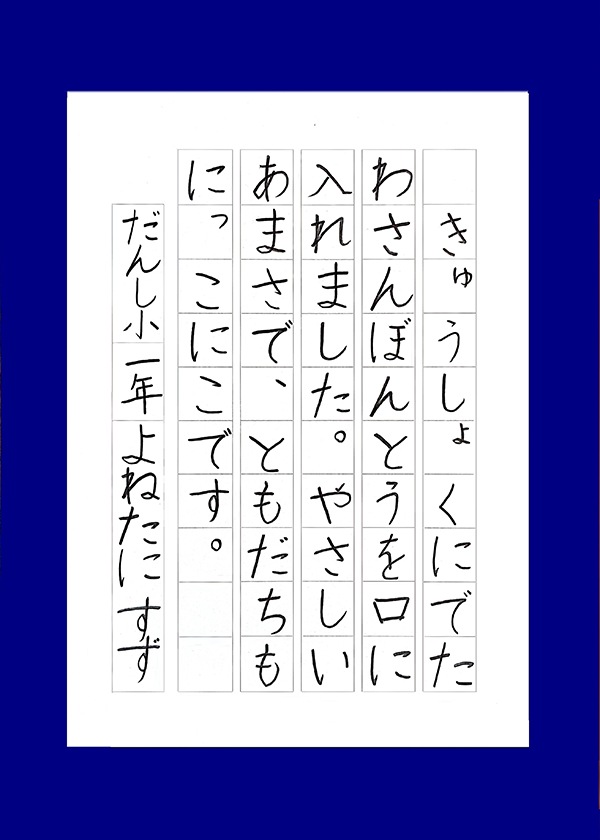 きゅうしょくにでた
わさんぼんとうを口に
入れました。やさしい
あまさで、ともだちも
にっこにこです。
だんし小一年よねたにすず